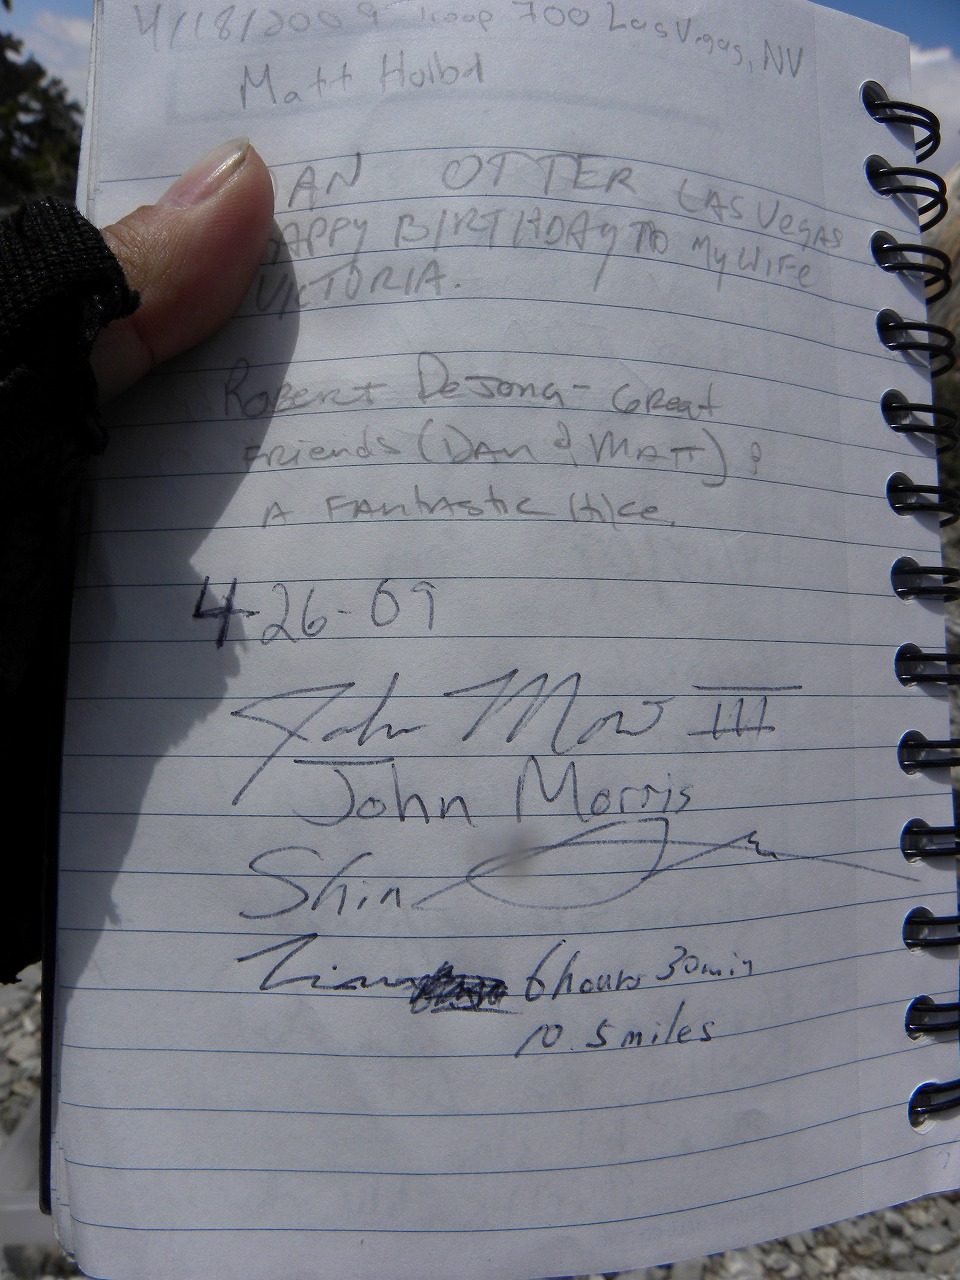 4/18/2009 Troop 700 Las Vegas, NV
Matt
AN OTTER LAS VEGAS
APPY BIRTHDAY TO MY WIFE
VICTORIA.
Robert DeJong - Great
Friends (Dan & Matt) &
A FANTASTIC Hike.
4-26-09
John III
John Morris
Shin
6 hours 30 min
10.5 miles